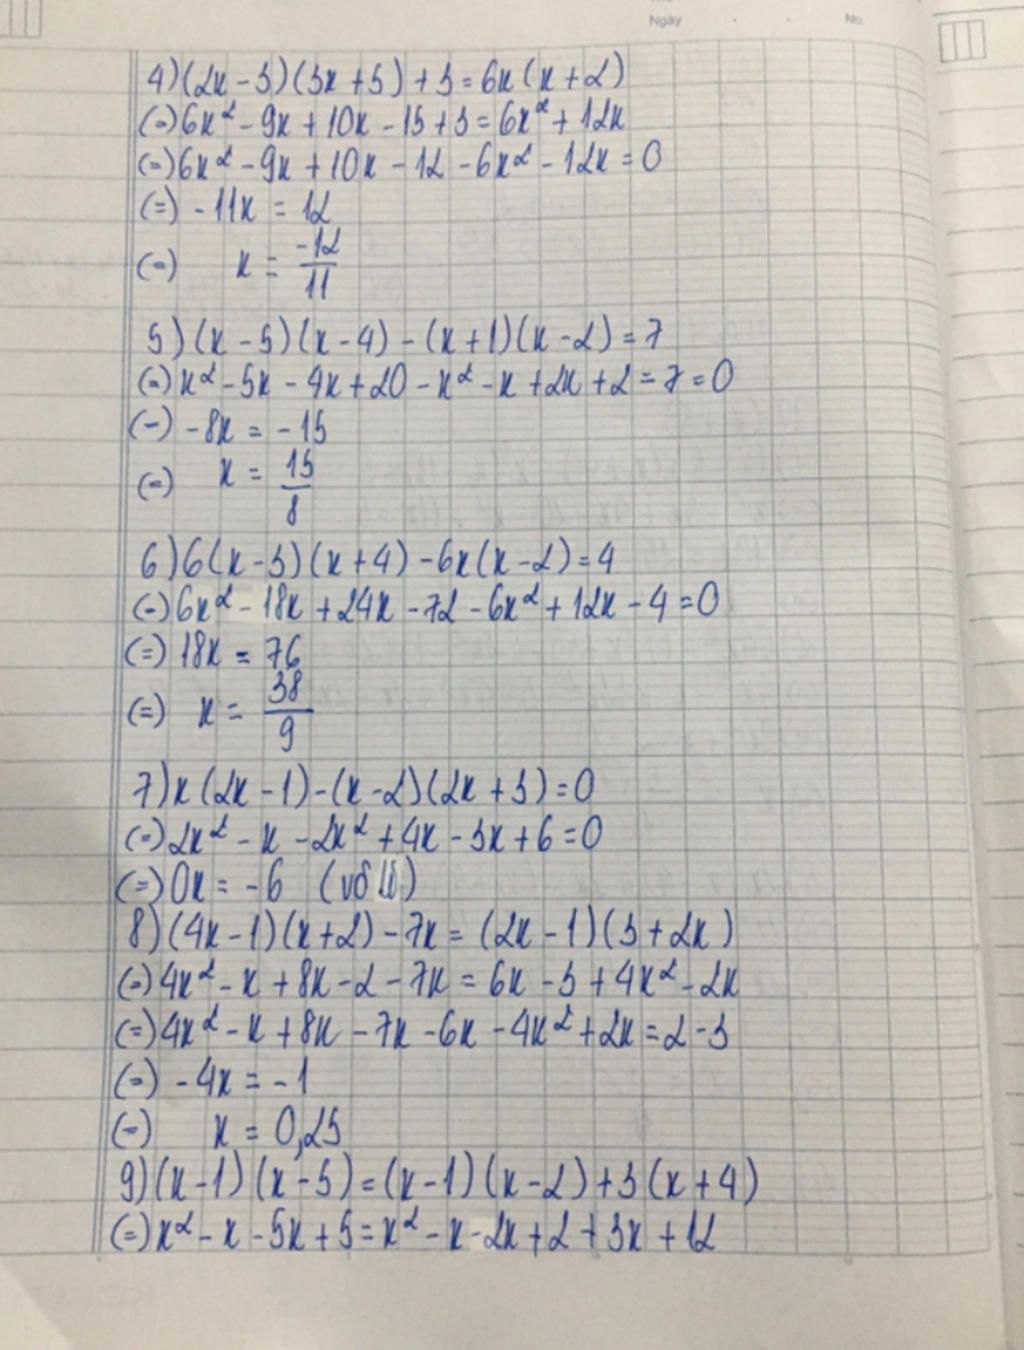 Ngày . . No.
4) (2x - 3)(3x + 5) + 3 = 6x(x + 2)
(=) 6x² - 9x + 10x - 15 + 3 = 6x² + 12x
(=) 6x² - 9x + 10x - 12 - 6x² - 12x = 0
(=) - 11x = 12
(=) x = -12/11
5) (x - 5)(x - 4) - (x + 1)(x - 2) = 7
(=) x² - 5x - 4x + 20 - x² - x + 2x + 2 = 7 = 0
(=) - 8x = - 15
(=) x = 15/8
6) 6(x - 3)(x + 4) - 6x(x - 2) = 4
(=) 6x² - 18x + 24x - 72 - 6x² + 12x - 4 = 0
(=) 18x = 76
(=) x = 38/9
7) x(2x - 1) - (x - 2)(2x + 3) = 0
(=) 2x² - x - 2x² + 4x - 3x + 6 = 0
(=) 0x = - 6 (vô lí)
8) (4x - 1)(x + 2) - 7x = (2x - 1)(3 + 2x)
(=) 4x² - x + 8x - 2 - 7x = 6x - 3 + 4x² - 2x
(=) 4x² - x + 8x - 7x - 6x - 4x² + 2x = 2 - 3
(=) - 4x = - 1
(=) x = 0,25
9) (x - 1)(x - 5) = (x - 1)(x - 2) + 3(x + 4)
(=) x² - x - 5x + 5 = x² - x - 2x + 2 + 3x + 12